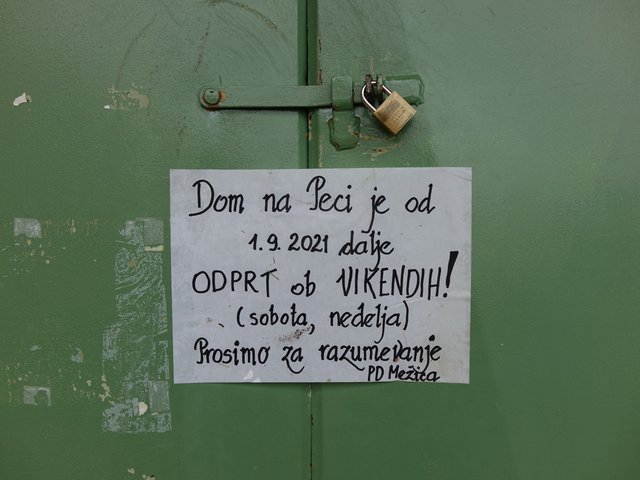 Dom na Peci je od
1.9.2021 dalje
ODPRT ob VIKENDIH!
(sobota, nedelja)
Prosimo za razumevanje
PD Mežica